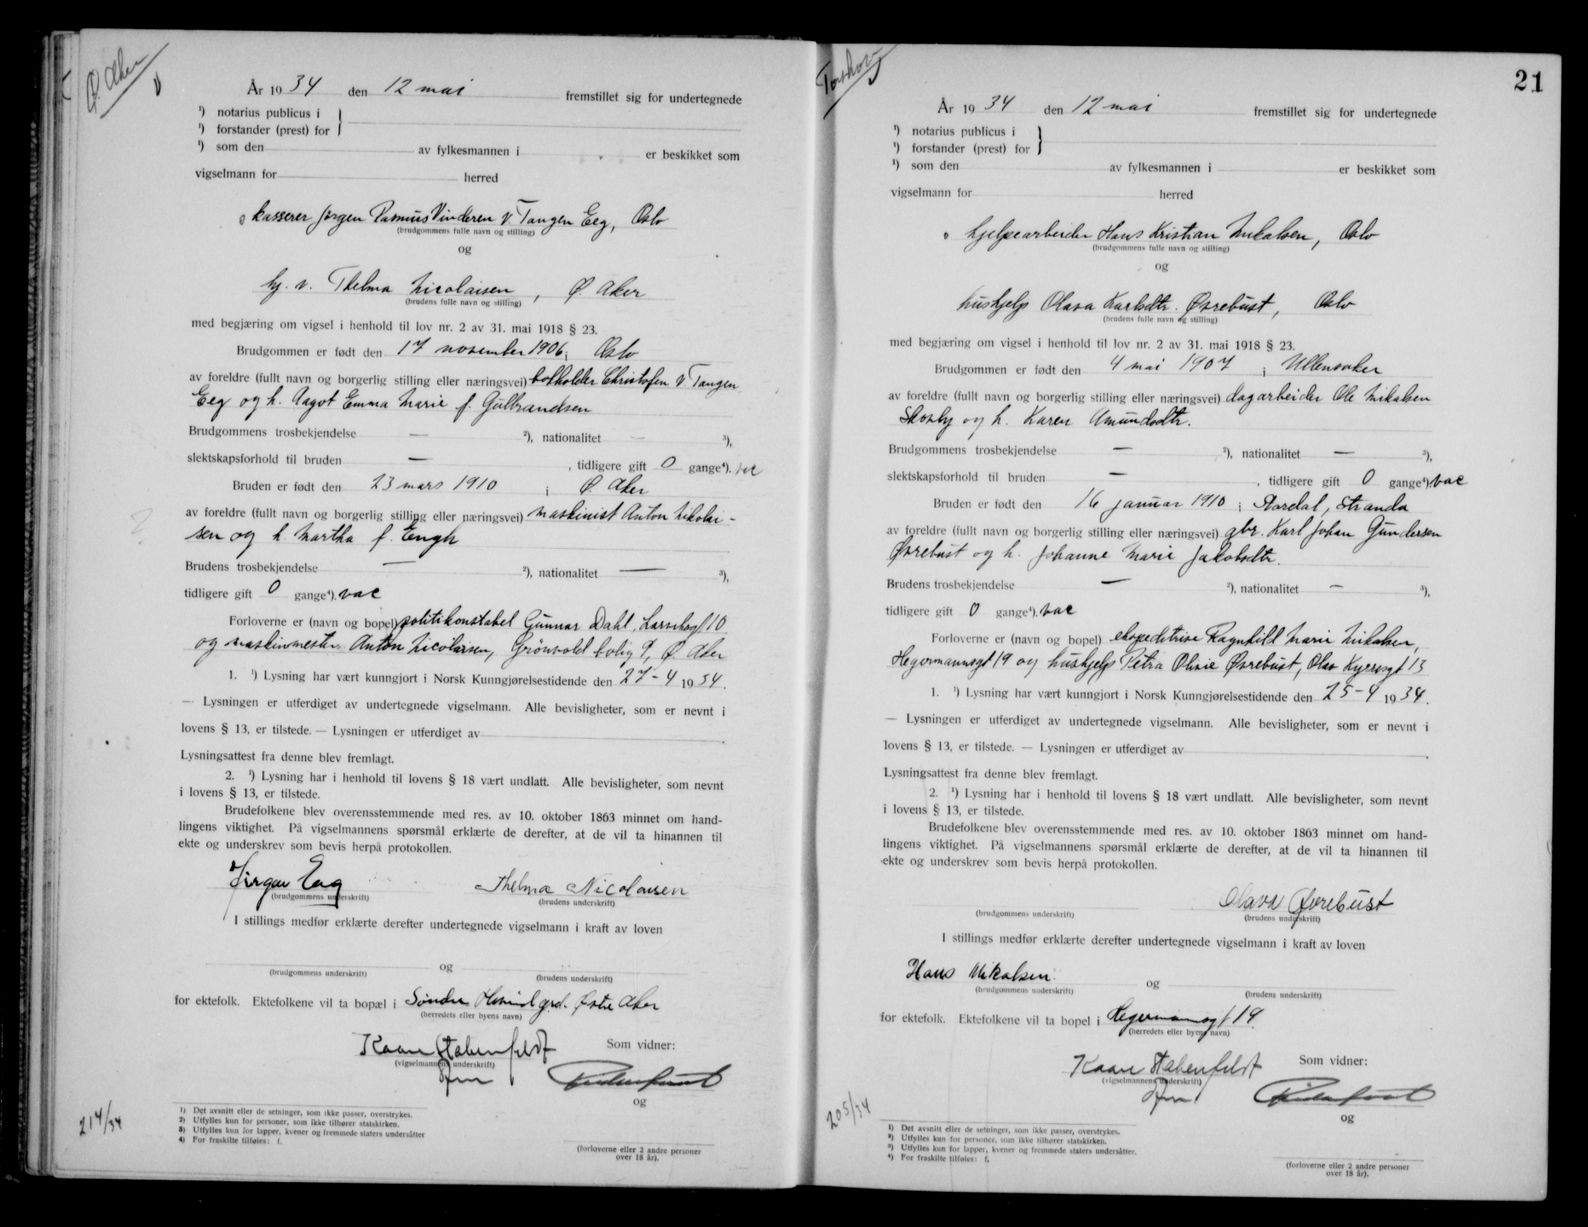 Ø. Aker
År 1934 den 12 mai fremstillet sig for undertegnede
¹) notarius publicus i
¹) forstander (prest) for
¹) som den av fylkesmannen i er beskikket som
vigselmann for herred
kasserer Jørgen Rasmus Vinderen v. Tangen Eeg, Oslo
(brudgommens fulle navn og stilling)
og
hj. v. Thelma Nicolaisen, Ø. Aker
(brudens fulle navn og stilling)
med begjæring om vigsel i henhold til lov nr. 2 av 31. mai 1918 § 23.
Brudgommen er født den 17 november 1906 i Oslo
av foreldre (fullt navn og borgerlig stilling eller næringsvei) Christofen v. Tangen
Eeg og h. Aagot Emma Marie f. Gulbrandsen
Brudgommens trosbekjendelse — ²), nationalitet — ³),
slektskapsforhold til bruden — , tidligere gift 0 gange⁴). vac
Bruden er født den 23 mars 1910 i Ø. Aker
av foreldre (fullt navn og borgerlig stilling eller næringsvei) maskinist Anton Nikolai-
sen og h. Martha f. Engh
Brudens trosbekjendelse — ²), nationalitet — ³),
tidligere gift 0 gange⁴). vac
Forloverne er (navn og bopel) politikonstabel Gunnar Dahl, 10
og maskinmester Anton Nicolaisen, Grönvold bolig 9, Ø. Aker
1. ¹) Lysning har vært kunngjort i Norsk Kunngjørelsestidende den 27-4 1934.
— Lysningen er utferdiget av undertegnede vigselmann. Alle bevisligheter, som er nevnt i
lovens § 13, er tilstede. — Lysningen er utferdiget av
Lysningsattest fra denne blev fremlagt.
2. ¹) Lysning har i henhold til lovens § 18 vært undlatt. Alle bevisligheter, som nevnt
i lovens § 13, er tilstede.
Brudefolkene blev overensstemmende med res. av 10. oktober 1863 minnet om hand-
lingens viktighet. På vigselmannens spørsmål erklærte de derefter, at de vil ta hinannen til
ekte og underskrev som bevis herpå protokollen.
Jørgen Eeg Thelma Nicolaisen
(brudgommens underskrift) (brudens underskrift)
I stillings medfør erklærte derefter undertegnede vigselmann i kraft av loven
og
(brudgommens underskrift) (brudens underskrift)
for ektefolk. Ektefolkene vil ta bopæl i Søndre Østre Aker
(herredets eller byens navn)
Kaare Habenfeldt Som vidner:
(vigselmannens underskrift)
og
214/34
¹) Det avsnitt eller de setninger, som ikke passer, overstrykes.
²) Utfylles kun for personer, som ikke tilhører statskirken.
³) Utfylles kun for lapper, kvener og fremmede staters undersåtter
⁴) For fraskilte tilføies: f.
(forloverne eller 2 andre personer
over 18 år).
Torshov
21
År 1934 den 12 mai fremstillet sig for undertegnede
¹) notarius publicus i
¹) forstander (prest) for
¹) som den av fylkesmannen i er beskikket som
vigselmann for herred
hjelpearbeider Hans Kristian Mikalsen, Oslo
(brudgommens fulle navn og stilling)
og
hushjelp Olava Karlsdtr. Øvrebust, Oslo
(brudens fulle navn og stilling)
med begjæring om vigsel i henhold til lov nr. 2 av 31. mai 1918 § 23.
Brudgommen er født den 4 mai 1907 i Ullensaker
av foreldre (fullt navn og borgerlig stilling eller næringsvei) dagarbeider Ole Mikalsen
Skovly og h. Karen Amundsdtr.
Brudgommens trosbekjendelse — ²), nationalitet — ³),
slektskapsforhold til bruden — , tidligere gift 0 gange⁴). vac
Bruden er født den 16 januar 1910 i Stordal, Stranda
av foreldre (fullt navn og borgerlig stilling eller næringsvei) gbr. Karl Johan Gundersen
Øvrebust og h. Johanne Marie Jakobsdtr.
Brudens trosbekjendelse — ²), nationalitet — ³),
tidligere gift 0 gange⁴). vac
Forloverne er (navn og bopel) ekspeditrise Ragnhild Marie Mikalsen,
Hegermannsgt 19 og hushjelp Petra Oline Øvrebust, Olav Kyrresgt 13
1. ¹) Lysning har vært kunngjort i Norsk Kunngjørelsestidende den 25-4 1934.
— Lysningen er utferdiget av undertegnede vigselmann. Alle bevisligheter, som er nevnt i
lovens § 13, er tilstede. — Lysningen er utferdiget av
Lysningsattest fra denne blev fremlagt.
2. ¹) Lysning har i henhold til lovens § 18 vært undlatt. Alle bevisligheter, som nevnt
i lovens § 13, er tilstede.
Brudefolkene blev overensstemmende med res. av 10. oktober 1863 minnet om hand-
lingens viktighet. På vigselmannens spørsmål erklærte de derefter, at de vil ta hinannen til
ekte og underskrev som bevis herpå protokollen.
Olava Øvrebust
(brudgommens underskrift) (brudens underskrift)
I stillings medfør erklærte derefter undertegnede vigselmann i kraft av loven
Hans Mikalsen og
(brudgommens underskrift) (brudens underskrift)
for ektefolk. Ektefolkene vil ta bopel i Hegermannsgt 19
(herredets eller byens navn)
Kaare Habenfeldt Som vidner:
(vigselmannens underskrift)
og
205/34
¹) Det avsnitt eller de setninger, som ikke passer, overstrykes.
²) Utfylles kun for personer, som ikke tilhører statskirken.
³) Utfylles kun for lapper, kvener og fremmede staters undersåtter.
⁴) For fraskilte tilføies: f.
(forloverne eller 2 andre personer
over 18 år).